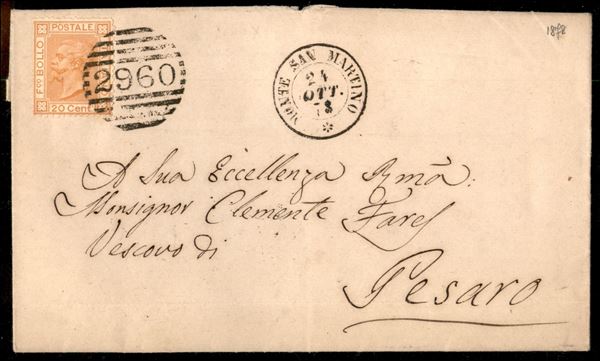 1878
POSTALE
Fco BOLLO
20 Cent
2960
MONTE SAN MARTINO
24
OTT.
78
A Sua Eccellenza Rmã:
Monsignor Clemente Fares
Vescovo di
Pesaro